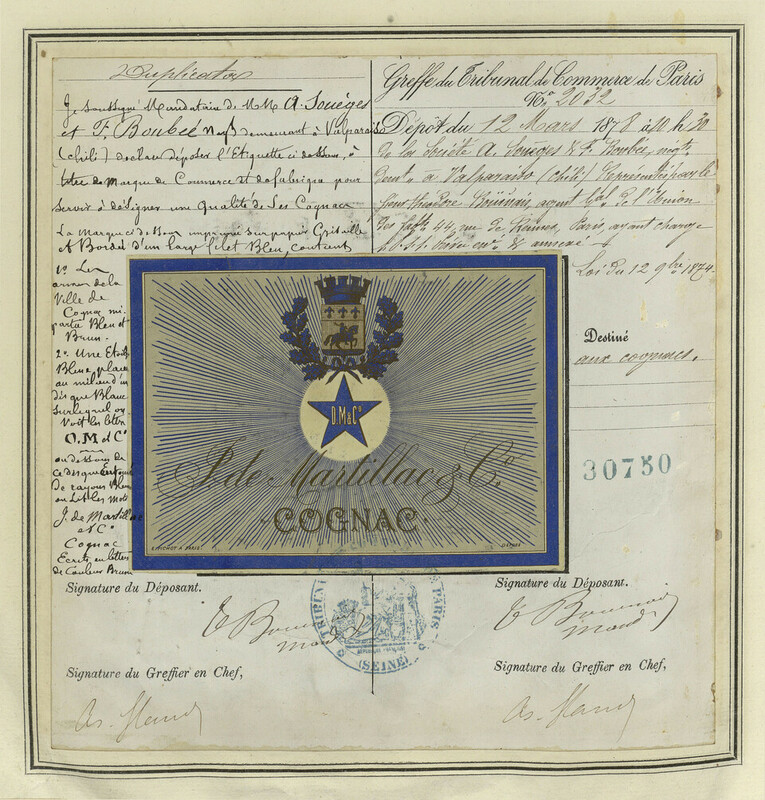 Duplicata
Je soussigné Mandataire de MM A. Souèges
et F. Boubée Nég.ts demeurant à Valparaiso
(Chili) déclare déposer l'Etiquette ci dessous, à
titre de Marque de Commerce et de fabrique pour
servir à désigner une Qualité de Ses Cognacs
La Marque ci dessous imprimée sur papier Grisaille
et Bordée d'un large filet Bleu, contient
1° Les
armes de la
Ville de
Cognac mi
partie Bleu et
Brun.
2° Une Etoile
Bleue placée
au milieu d'un
disque Blanc
sur lequel on
voit les lettres
O.M et C°
au dessous de
ce disque
de rayons Bleus
on lit les mots
J. de Martillac
et C°
Cognac
Ecrits en lettres
de couleur Brune
Greffe du Tribunal de Commerce de Paris
N° 2032
Dépôt du 12 Mars 1878 à 10 h 30
de la Société A. Souèges & F. Boubée, négts
demt à Valparaiso (Chili) représentée par le
Sieur Théodore agent Gal de l'Union
des fabts 44, rue de Rennes, Paris, ayant charge
p.v. s.s.p. enreg. & annexé
Loi du 12 9bre 1874.
Destiné
aux cognacs.
30750
D.M&C°
J. de Martillac & C°
COGNAC
A PARIS
DÉPOSÉ
Signature du Déposant.
Signature du Déposant.
TRIBUNAL
PARIS
(SEINE)
Signature du Greffier en Chef,
Signature du Greffier en Chef,